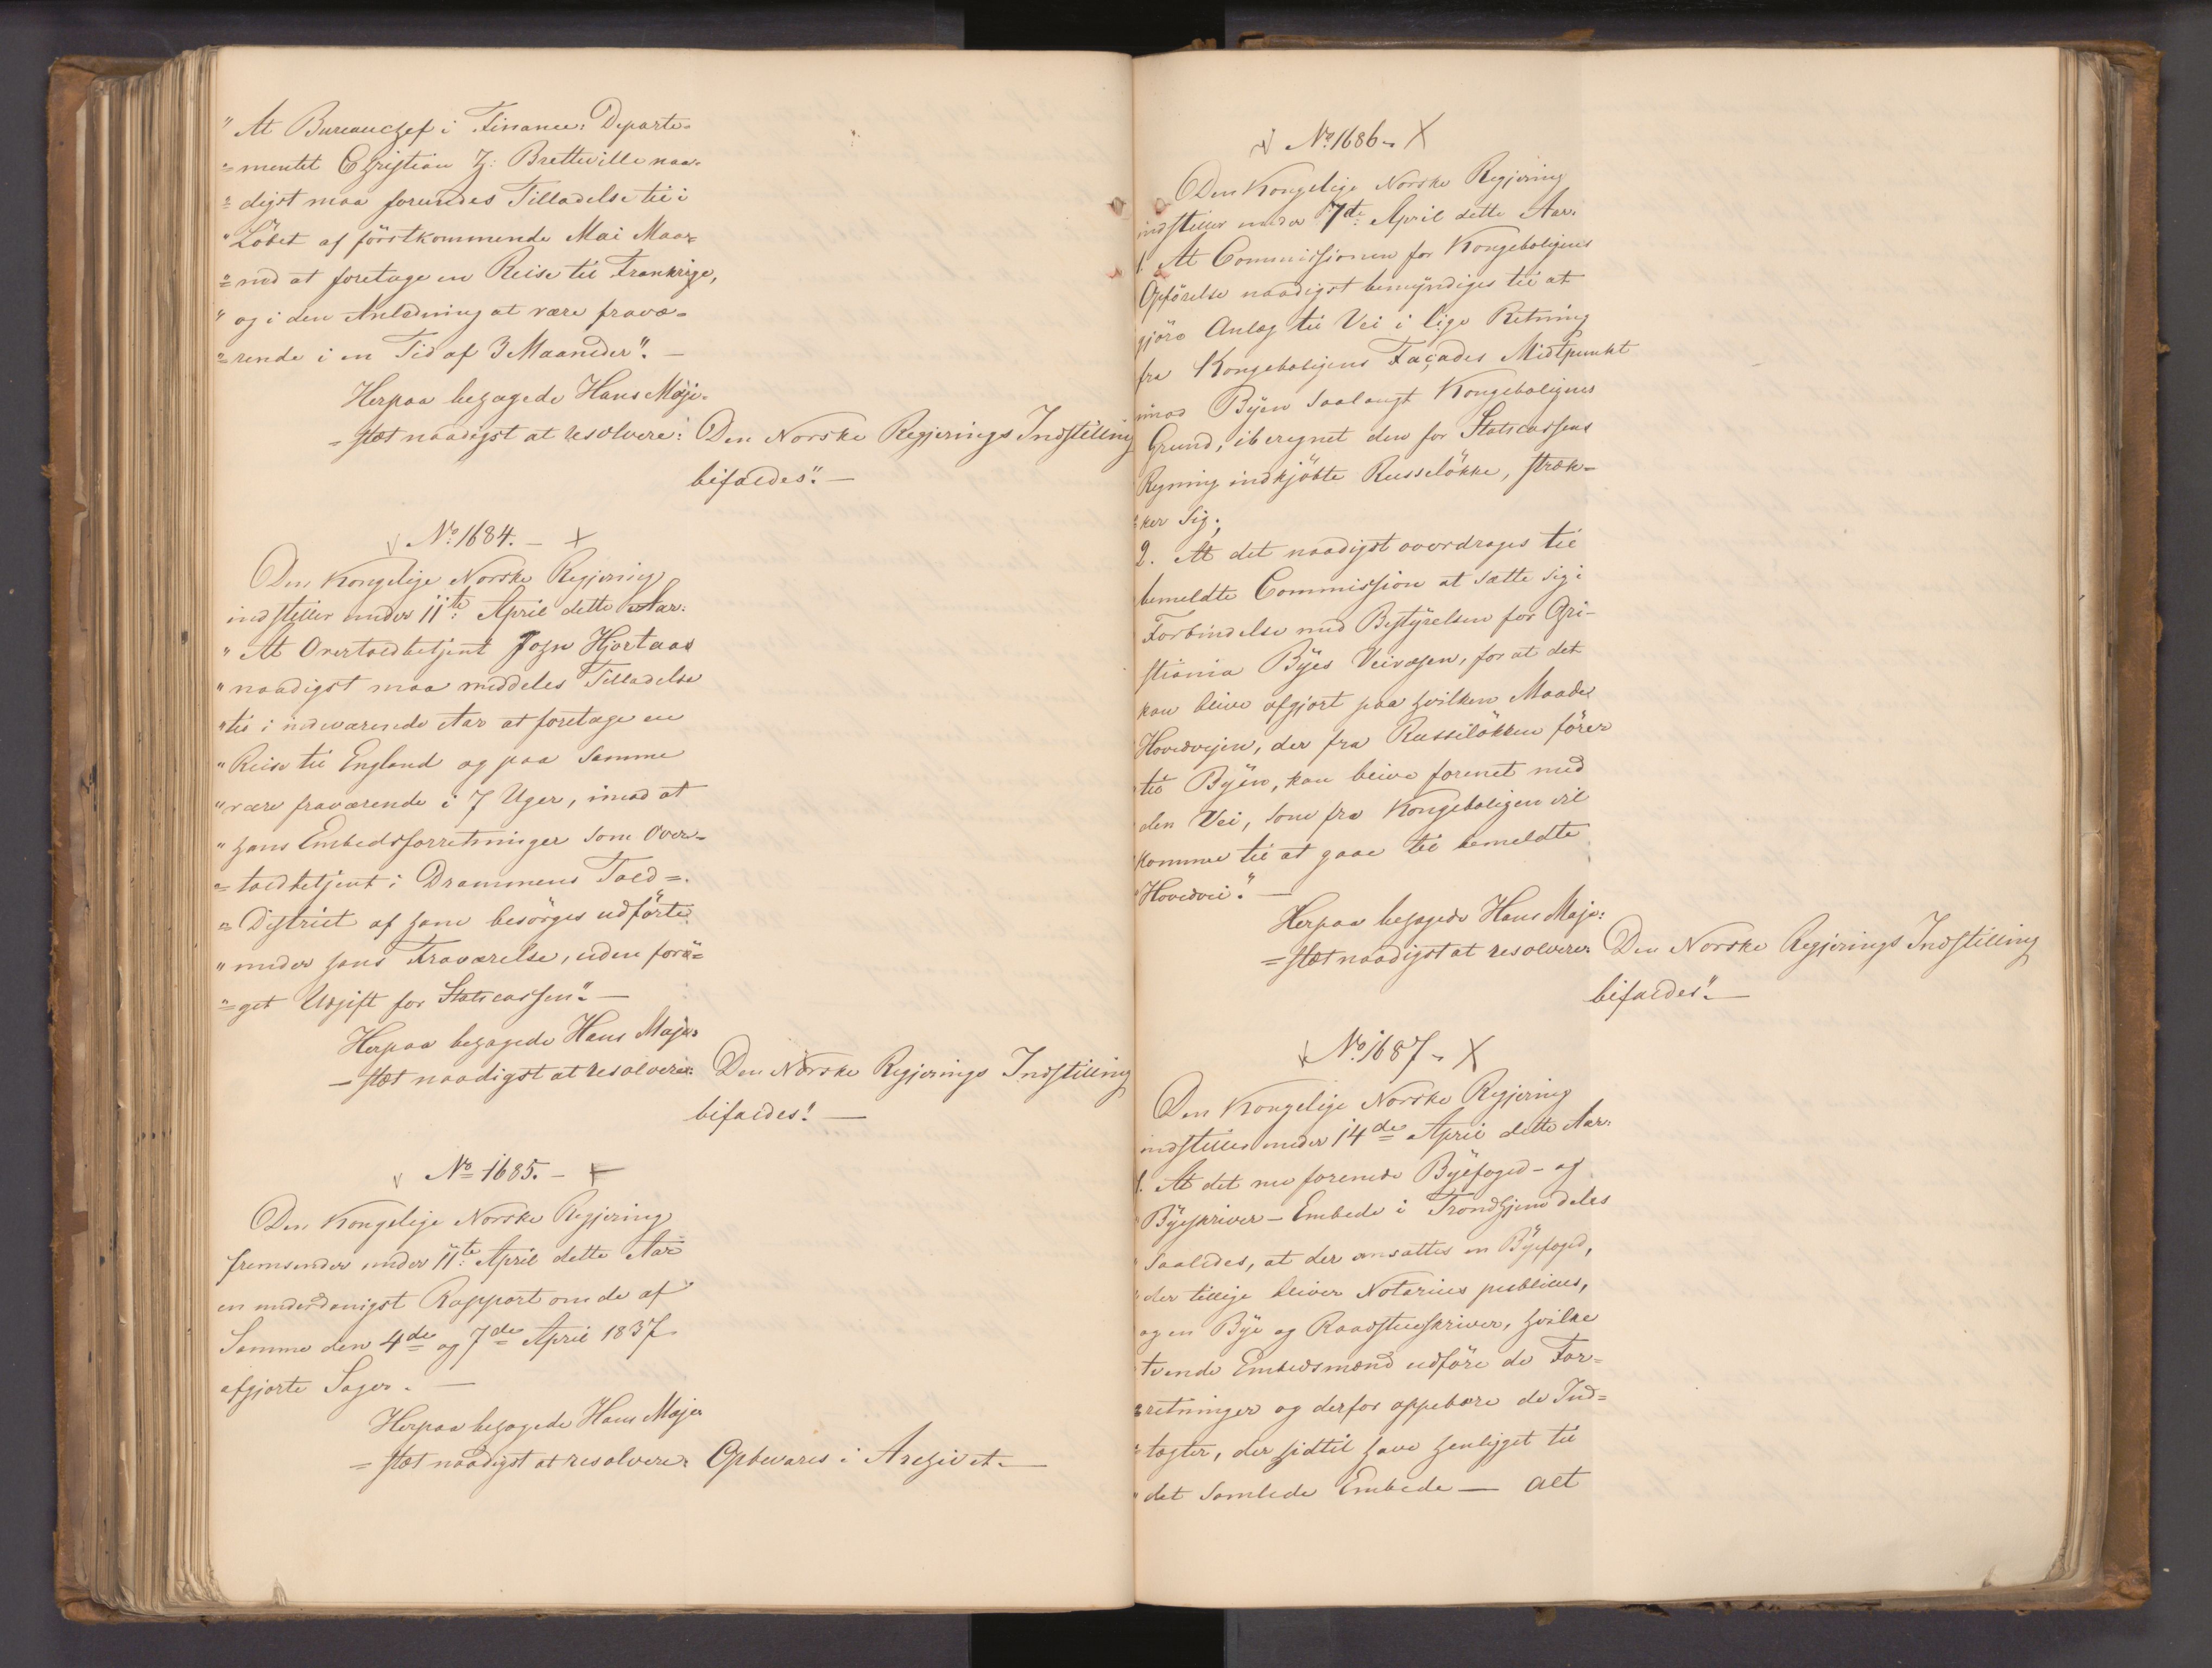 "At Bureauchef i Finance: Departe=
=mentet Christian H: Bretteville naa=
=digst maa forundes Tilladelse til i
"Löbet af förstkommende Mai Maa=
=ned at foretage en Reise til Frankrige,
"og i den Anledning at være fravæ=
=rende i en Tid af 3 Maaneder". —
Herpaa behagede Hans Maje=
=stæt naadigst at resolvere: Den Norske Regjerings Indstilling
bifaldes". —
No 1684. — X
Den Kongelige Norske Regjering
indstiller under 11te April dette Aar:
"At Overtoldbetjent John Hjortaas
"naadigst maa meddeles Tilladelse
"til i indeværende Aar at foretage en
"Reise til England og paa samme
"være fraværende i 7 Uger, imod at
"hans Embedsforretninger som Over=
=toldbetjent i Drammens Told=
=District af ham besörges udförte
"under hans Fraværelse, uden forö=
=get Udgift for Statscassen". —
Herpaa behagede Hans Maje=
=stæt naadigst at resolvere: Den Norske Regjerings Indstilling
bifaldes". —
No 1685. — X
Den Kongelige Norske Regjering
fremsender under 11te April dette Aar
en underdanigst Rapport om de af
Samme den 4de og 7de April 1837
afgjorte Sager. —
Herpaa behagede Hans Maje=
=stæt naadigst at resolvere: Opbevares i Archivet. —
No 1686. X
Den Kongelige Norske Regjering
indstiller under 7de April dette Aar:
1. At Commissionen for Kongeboligens
Opförelse naadigst bemyndiges til at
gjöre Anlæg til Vei i lige Retning
fra Kongeboligens Façades Midtpunkt
imod Byen saalangt Kongeboligens
Grund, iberegnet den for Statscassens
Regning indkjöbte Russelökke, stræk=
=ker sig;
2. At det naadigst overdrages til
bemeldte Commission at sætte sig i
Forbindelse med Bestyrelsen for Chri=
stiania Byes Veivæsen, for at det
kan blive afgjort paa hvilken Maade
Hovedveien, der fra Russelökken förer
til Byen, kan blive forenet med
den Vei, som fra Kongeboligen vil
komme til at gaae til bemeldte
"Hovedvei". —
Herpaa behagede Hans Maje=
=stæt naadigst at resolvere: Den Norske Regjerings Indstilling
bifaldes". —
No 1687. X
Den Kongelige Norske Regjering
indstiller under 14de April dette Aar:
1. At det nu forenede Byefoged- og
"Byeskriver-Embede i Trondhjem deles
"saaledes, at der ansættes en Byefoged,
"der tillige bliver Notarius publicus,
og en Bye og Raadstueskriver, hvilke
tvende Embedsmænd udföre de For=
=retninger og derfor oppebære de Ind=
=tægter, der hidtil have henligget til
"det samlede Embede — alt